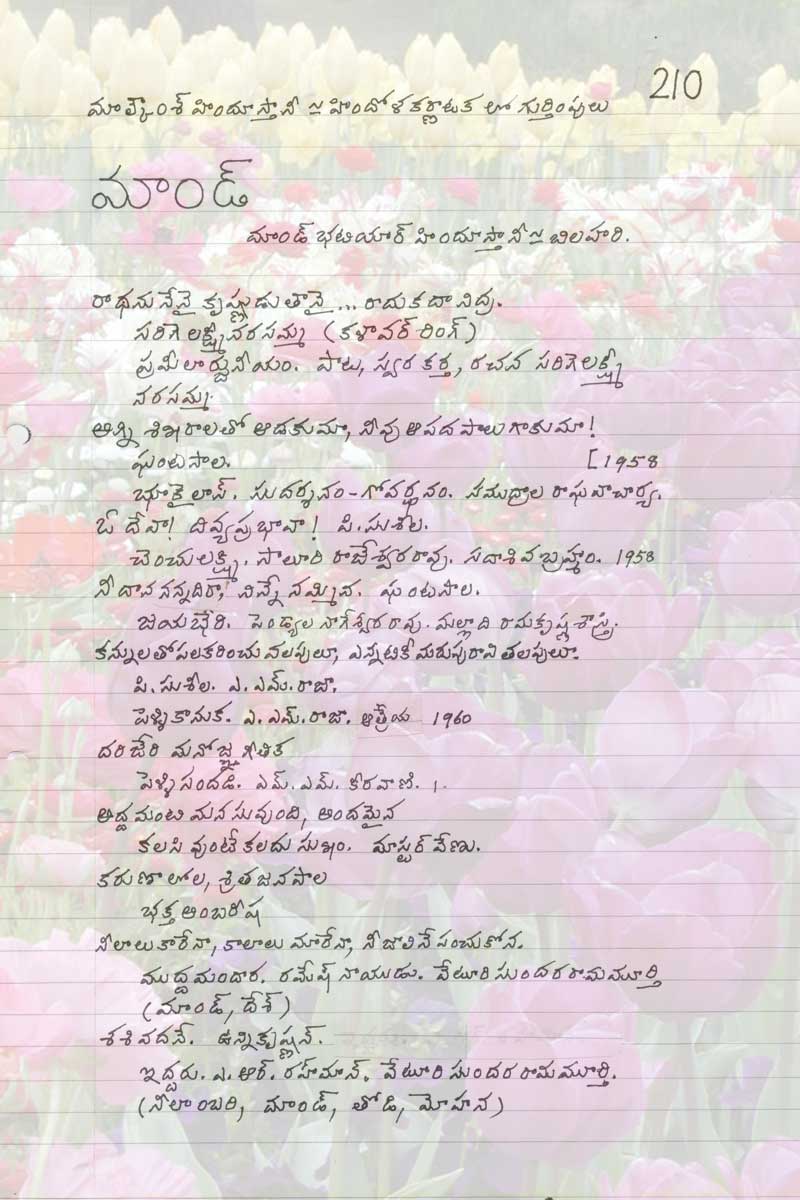 210
మాల్కౌంశ్ హిందూస్తానీ ≃ హిందోళ కర్ణాటక లో గుర్తింపులు
మాండ్
మాండ్ భటియార్ హిందూస్తానీ ≃ బిలహరి.
రాధను నేనై కృష్ణుడు తానై ... రాదు కదా నిద్ర.
సరిగె లక్ష్మీ నరసమ్మ (కళావర్ రింగ్)
ప్రమీలార్జునీయం. పాట, స్వర కర్త, రచన సరిగె లక్ష్మీ
నరసమ్మ.
అగ్ని శిఖరాలతో ఆడకుమా, నీవు ఆపద పాలు గాకుమా!
ఘంటసాల. [1958
భూకైలాస్. సుదర్శనం-గోవర్ధనం. సముద్రాల రాఘవాచార్య.
ఓ దేవా! దివ్యప్రభావా! పి.సుశీల.
చెంచులక్ష్మి. సాలూరి రాజేశ్వరరావు. సదాశివబ్రహ్మం. 1958
నీ దాన నన్నదిరా, నిన్నే నమ్మిన. ఘంటసాల.
జయభేరి. పెండ్యాల నాగేశ్వర రావు. మల్లాది రామకృష్ణ శాస్త్రి.
కన్నులతో పలకరించు వలపులూ, ఎన్నటికీ మరుపురాని తలపులూ.
పి.సుశీల. ఎ.ఎమ్.రాజా.
పెళ్ళికానుక. ఎ.ఎమ్.రాజా. ఆత్రేయ 1960
దరిచేరి మనోజ్ఞ గీతిక
పెళ్ళి సందడి. ఎమ్.ఎమ్. కీరవాణి.
అద్దమంటి మనసువుంది, అందమైన
కలసి వుంటే కలదు సుఖం. మాస్టర్ వేణు.
కరుణాలోల, శ్రితజనపాల
భక్త అంబరీష
నీలాలు కారేనా, కాలాలు మారేనా, నీ జాలినే పంచుకోనా.
ముద్ద మందారం. రమేష్ నాయుడు. వేటూరి సుందరరామమూర్తి
(మాండ్, దేశ్)
శశివదనే. ఉన్నికృష్ణన్.
ఇద్దరు. ఎ.ఆర్. రహ్మాన్. వేటూరి సుందరరామమూర్తి.
(నీలాంబరి, మాండ్, తోడి, మోహన)